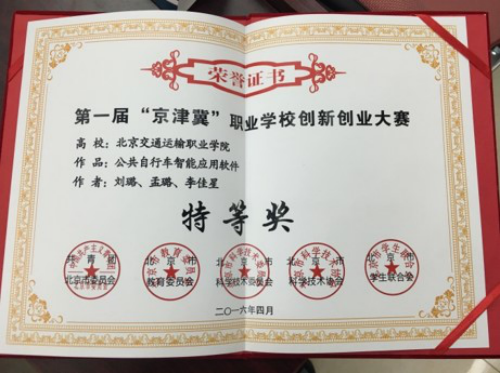 荣誉证书
第一届“京津冀”职业学校创新创业大赛
高校：北京交通运输职业学院
作品：公共自行车智能应用软件
作者：刘璐、孟璐、李佳星
特等奖
共青团 北京市 北京市 北京市 北京市
北京市委员会 教育委员会 科学技术委员会 科学技术协会 学生联合会
二〇一六年四月